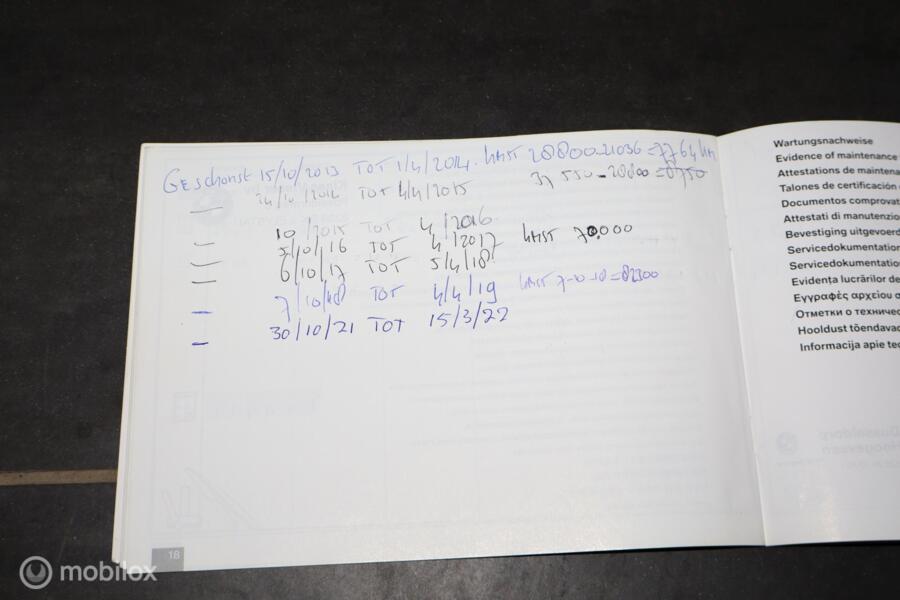 GESCHORST 15/10/2013 TOT 1/4/2014. KMST 28800-21036=7764KM
14/10/2014 TOT 4/4/2015 37550-28800=8750
— 10/2015 TOT 4/2016
— 5/10/16 TOT 4/2017 KMST 70.000
— 6/10/17 TOT 5/4/18
— 7/10/18 TOT 4/4/19 KMST 7-10-18=82300
— 30/10/21 TOT 15/3/22
18
Wartungsnachweise
Evidence of maintenance
Attestations de maintena
Talones de certificación
Documentos comprovat
Attestati di manutenzio
Bevestiging uitgevoerd
Servicedokumentation
Servicedokumentatio
Evidența lucrărilor de
Εγγραφές αρχείου σ
Отметки о техничес
Hooldust tõendava
Informacija apie tec
mobilox